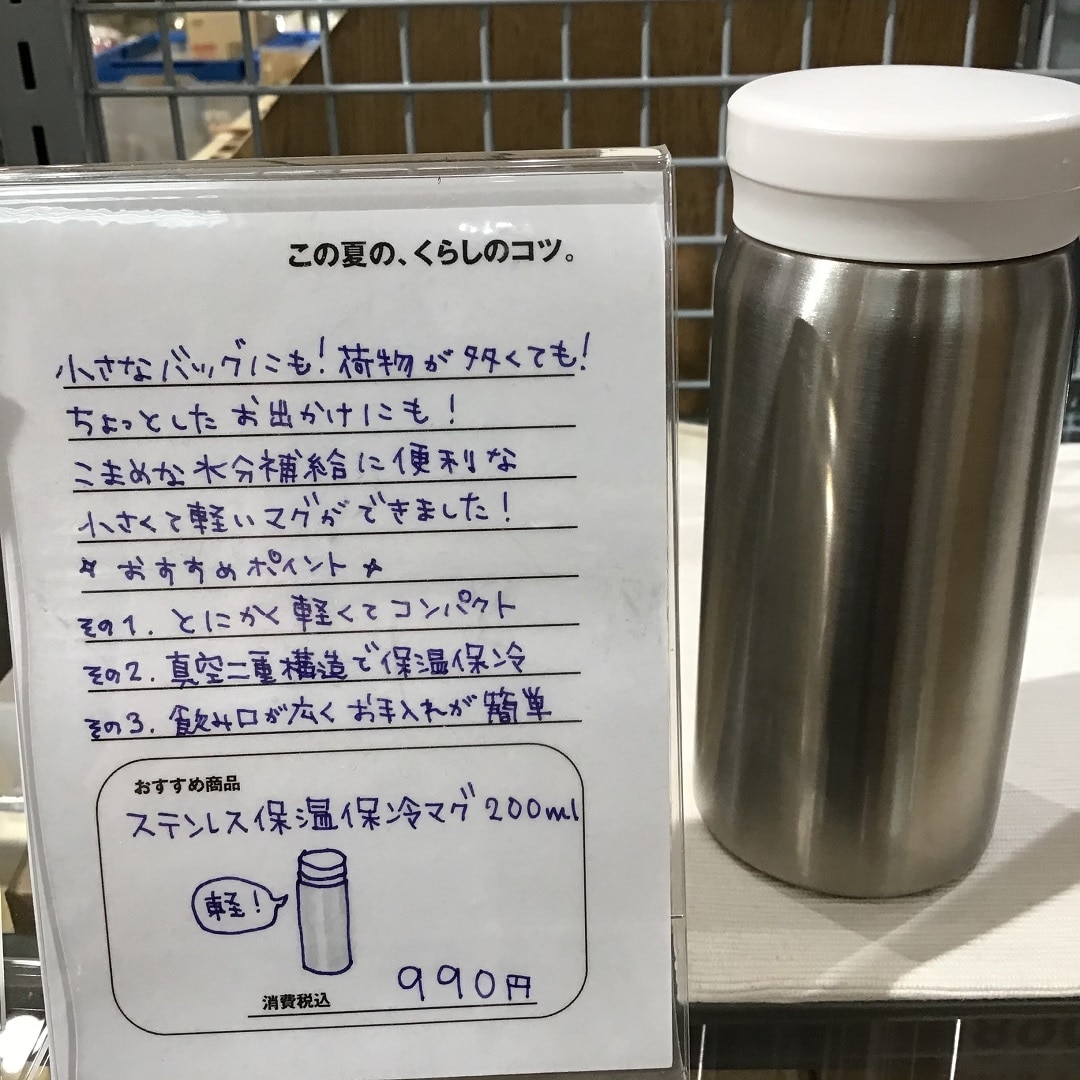 この夏の、くらしのコツ。
小さなバッグにも！荷物が多くても！
ちょっとしたお出かけにも！
こまめな水分補給に便利な
小さくて軽いマグができました！
☆おすすめポイント☆
その1. とにかく軽くてコンパクト
その2. 真空二重構造で保温保冷
その3. 飲み口が広くお手入れが簡単
おすすめ商品
ステンレス保温保冷マグ 200ml
軽！
消費税込 990円